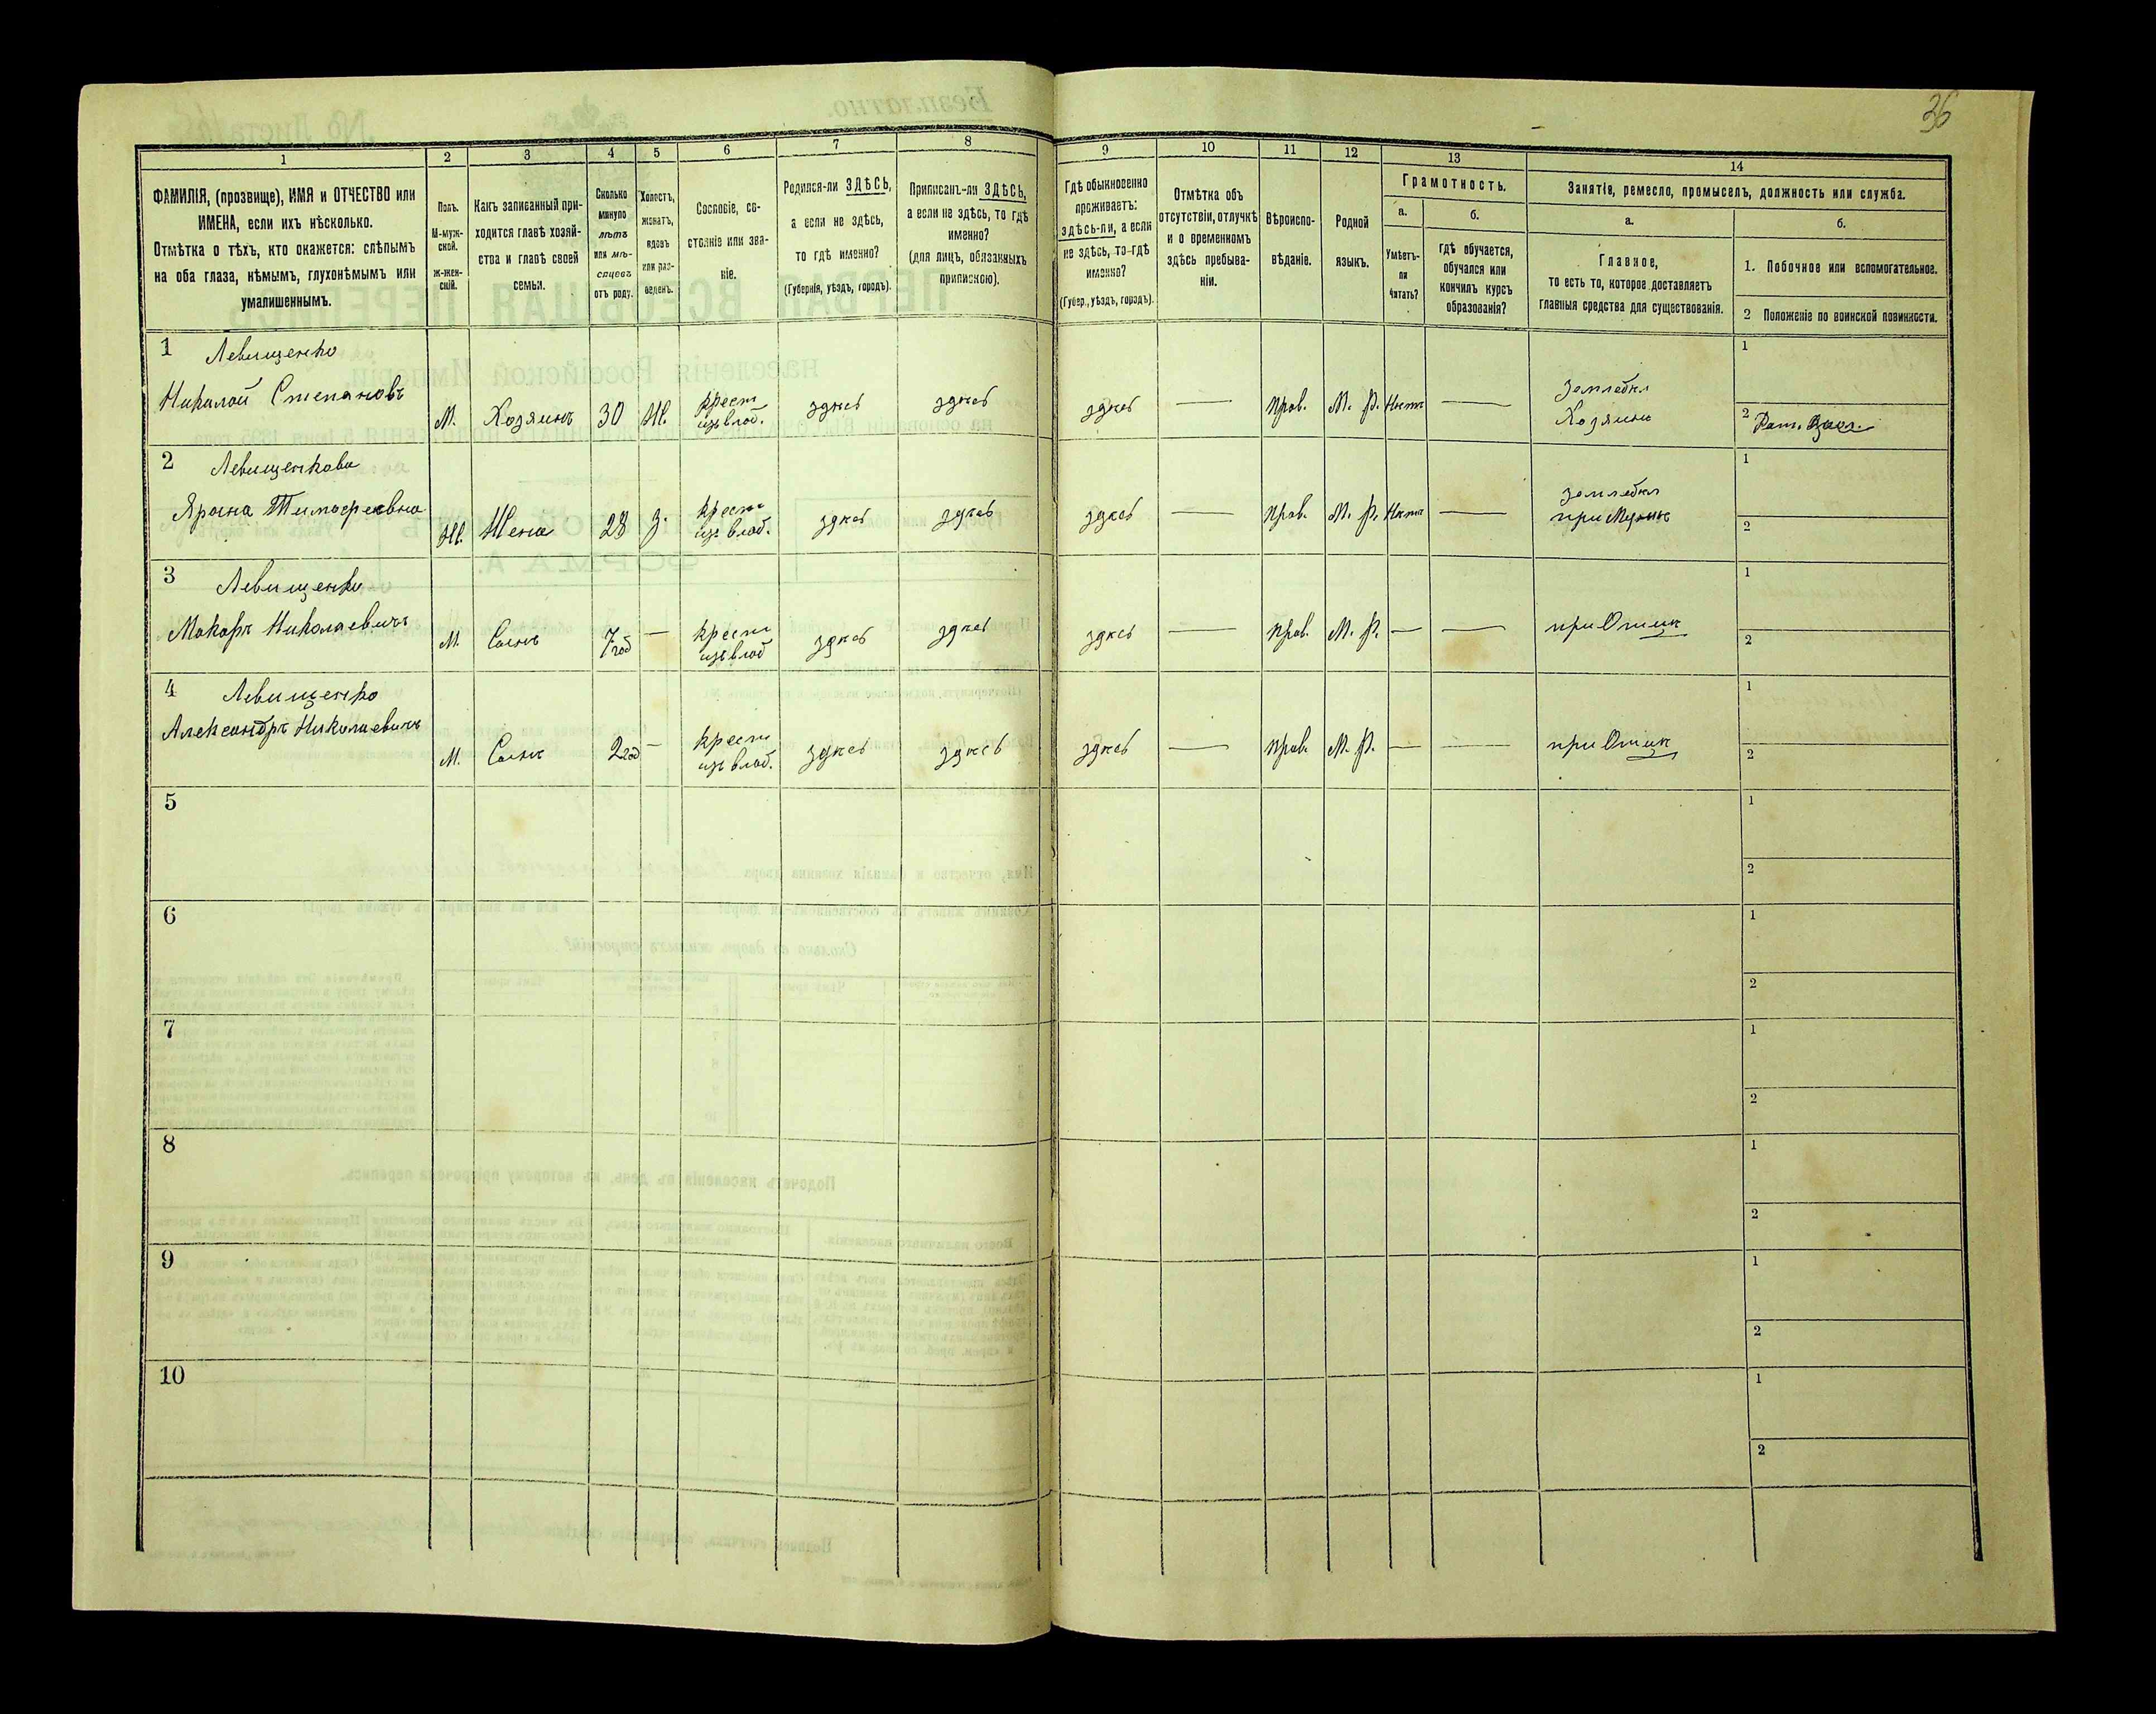 36
1 2 3 4 5 6 7 8 9 10 11 12 13 14
ФАМИЛІЯ, (прозвище), ИМЯ и ОТЧЕСТВО или
ИМЕНА, если ихъ нѣсколько.
Отмѣтка о тѣхъ, кто окажется: слѣпымъ
на оба глаза, нѣмымъ, глухонѣмымъ или
умалишеннымъ.
Полъ.
М-муж-
ской.
Ж-жен-
скій.
Какъ записанный при-
ходится главѣ хозяй-
ства и главѣ своей
семьи.
Сколько
минуло
лѣтъ
или мѣ-
сяцевъ
отъ роду.
Холостъ,
женатъ,
вдовъ
или раз-
веденъ.
Сословіе, со-
стояніе или зва-
ніе.
Родился-ли ЗДѢСЬ,
а если не здѣсь,
то гдѣ именно?
(Губернія, уѣздъ, городъ).
Приписанъ-ли ЗДѢСЬ,
а если не здѣсь, то гдѣ
именно?
(для лицъ, обязанныхъ
припискою).
Гдѣ обыкновенно
проживаетъ:
здѣсь-ли, а если
не здѣсь, то-гдѣ
именно?
(Губер., уѣздъ, городъ).
Отмѣтка объ
отсутствіи, отлучкѣ
и о временномъ
здѣсь пребыва-
ніи.
Вѣроиспо-
вѣданіе.
Родной
языкъ.
Грамотность.
а.
Умѣетъ-
ли
читать?
б.
гдѣ обучается,
обучался или
кончилъ курсъ
образованія?
Занятіе, ремесло, промыселъ, должность или служба.
а.
Главное,
то есть то, которое доставляетъ
главныя средства для существованія.
б.
1. Побочное или вспомогательное.
2 Положеніе по воинской повинности.
1 Левищенко
Николай Степановъ
М. Хозяинъ 30 Ж.
крест
изъ влад.
здѣсь здѣсь здѣсь — прав. М. Р. Нѣтъ —
Землебкл
Хозяинъ
1
2 Рат.
2 Левищенкова
Тимофеевна
Ж. Жена 28 З.
крест
изъ влад.
здѣсь здѣсь здѣсь — прав. М. Р. Нѣтъ —
землебкл
при Мужѣ
1
2
3 Левищенко
Макаръ Николаевичъ
М. Сынъ 7 год —
крест
изъ влад
здѣсь здѣсь здѣсь — прав. М. Р. — —
при Отцѣ
1
2
4 Левищенко
Александръ Николаевичъ
М. Сынъ 2 год —
крест
изъ влад.
здѣсь здѣсь здѣсь — прав. М. Р. — —
при Отцѣ
1
2
5
1
2
6
1
2
7
1
2
8
1
2
9
1
2
10
1
2